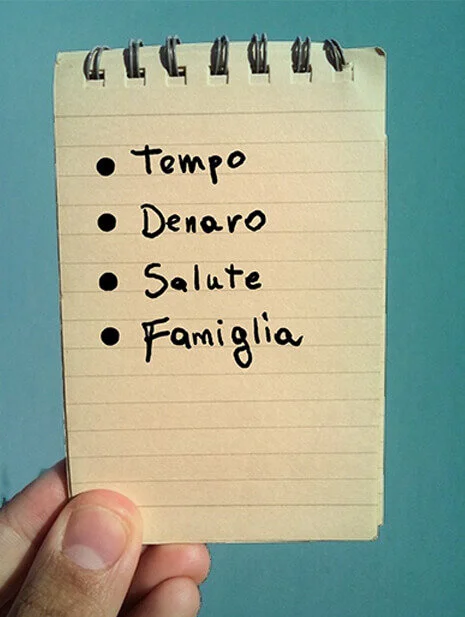 • Tempo
• Denaro
• Salute
• Famiglia